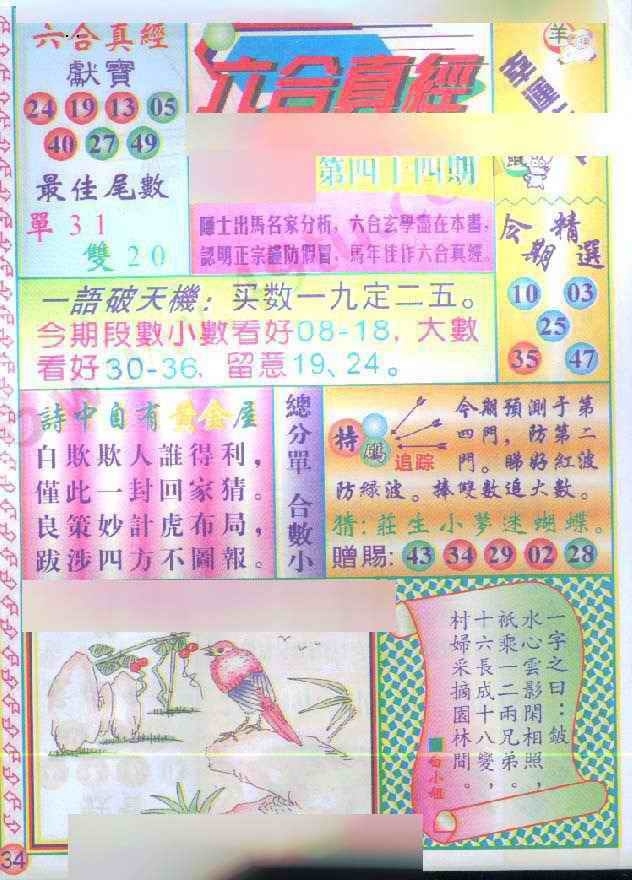 六合真經
獻寶
24 19 13 05
40 27 49
最佳尾數
單31
雙20
六合真經
第四十四期
羊
隱士出馬名家分析，六合玄學盡在本書，
認明正宗謹防假冒，馬年佳作六合真經。
今期精選
10 03
25
35 47
一語破天機：买数一九定二五。
今期段數小數看好08-18，大數
看好30-36，留意19、24。
詩中自有黃金屋
自欺欺人誰得利，
僅此一封回家猜。
良策妙計虎布局，
跋涉四方不圖報。
總分單 合數小
特碼
追踪
今期預測于第
四門，防第二
門。睇好紅波
防綠波。捧雙數追大數。
猜：莊生小夢迷蝴蝶。
贈賜：43 34 29 02 28
一字之曰：鈹
水心雲影閑相照，
祇乘一二兩兄弟。
十六長成十八變，
村婦采摘園林間。
白小姐
34